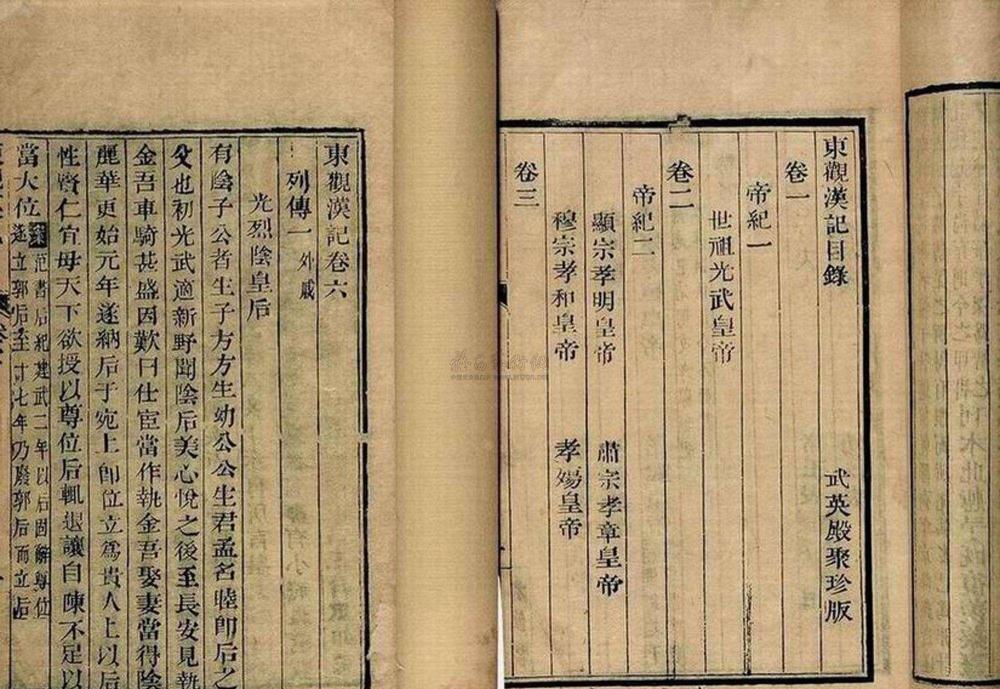 東觀漢記目錄
武英殿聚珍版
卷一
帝紀一
世祖光武皇帝
卷二
帝紀二
顯宗孝明皇帝
肅宗孝章皇帝
穆宗孝和皇帝
孝殤皇帝
卷三
東觀漢記卷六
列傳一 外戚
光烈陰皇后
有陰子公者生子方方生幼公公生君孟名睦即后之
父也初光武適新野聞陰后美心悅之後至長安見執
金吾車騎甚盛因歎曰仕宦當作執金吾娶妻當得陰
麗華更始元年遂納后于宛上即位立為貴人上以后
性賢仁宜母天下欲授以尊位后輒退讓自陳不足以
當大位案范書后紀建武二年以后固辭尊位
遂立郭后至十七年乃廢郭后而立后